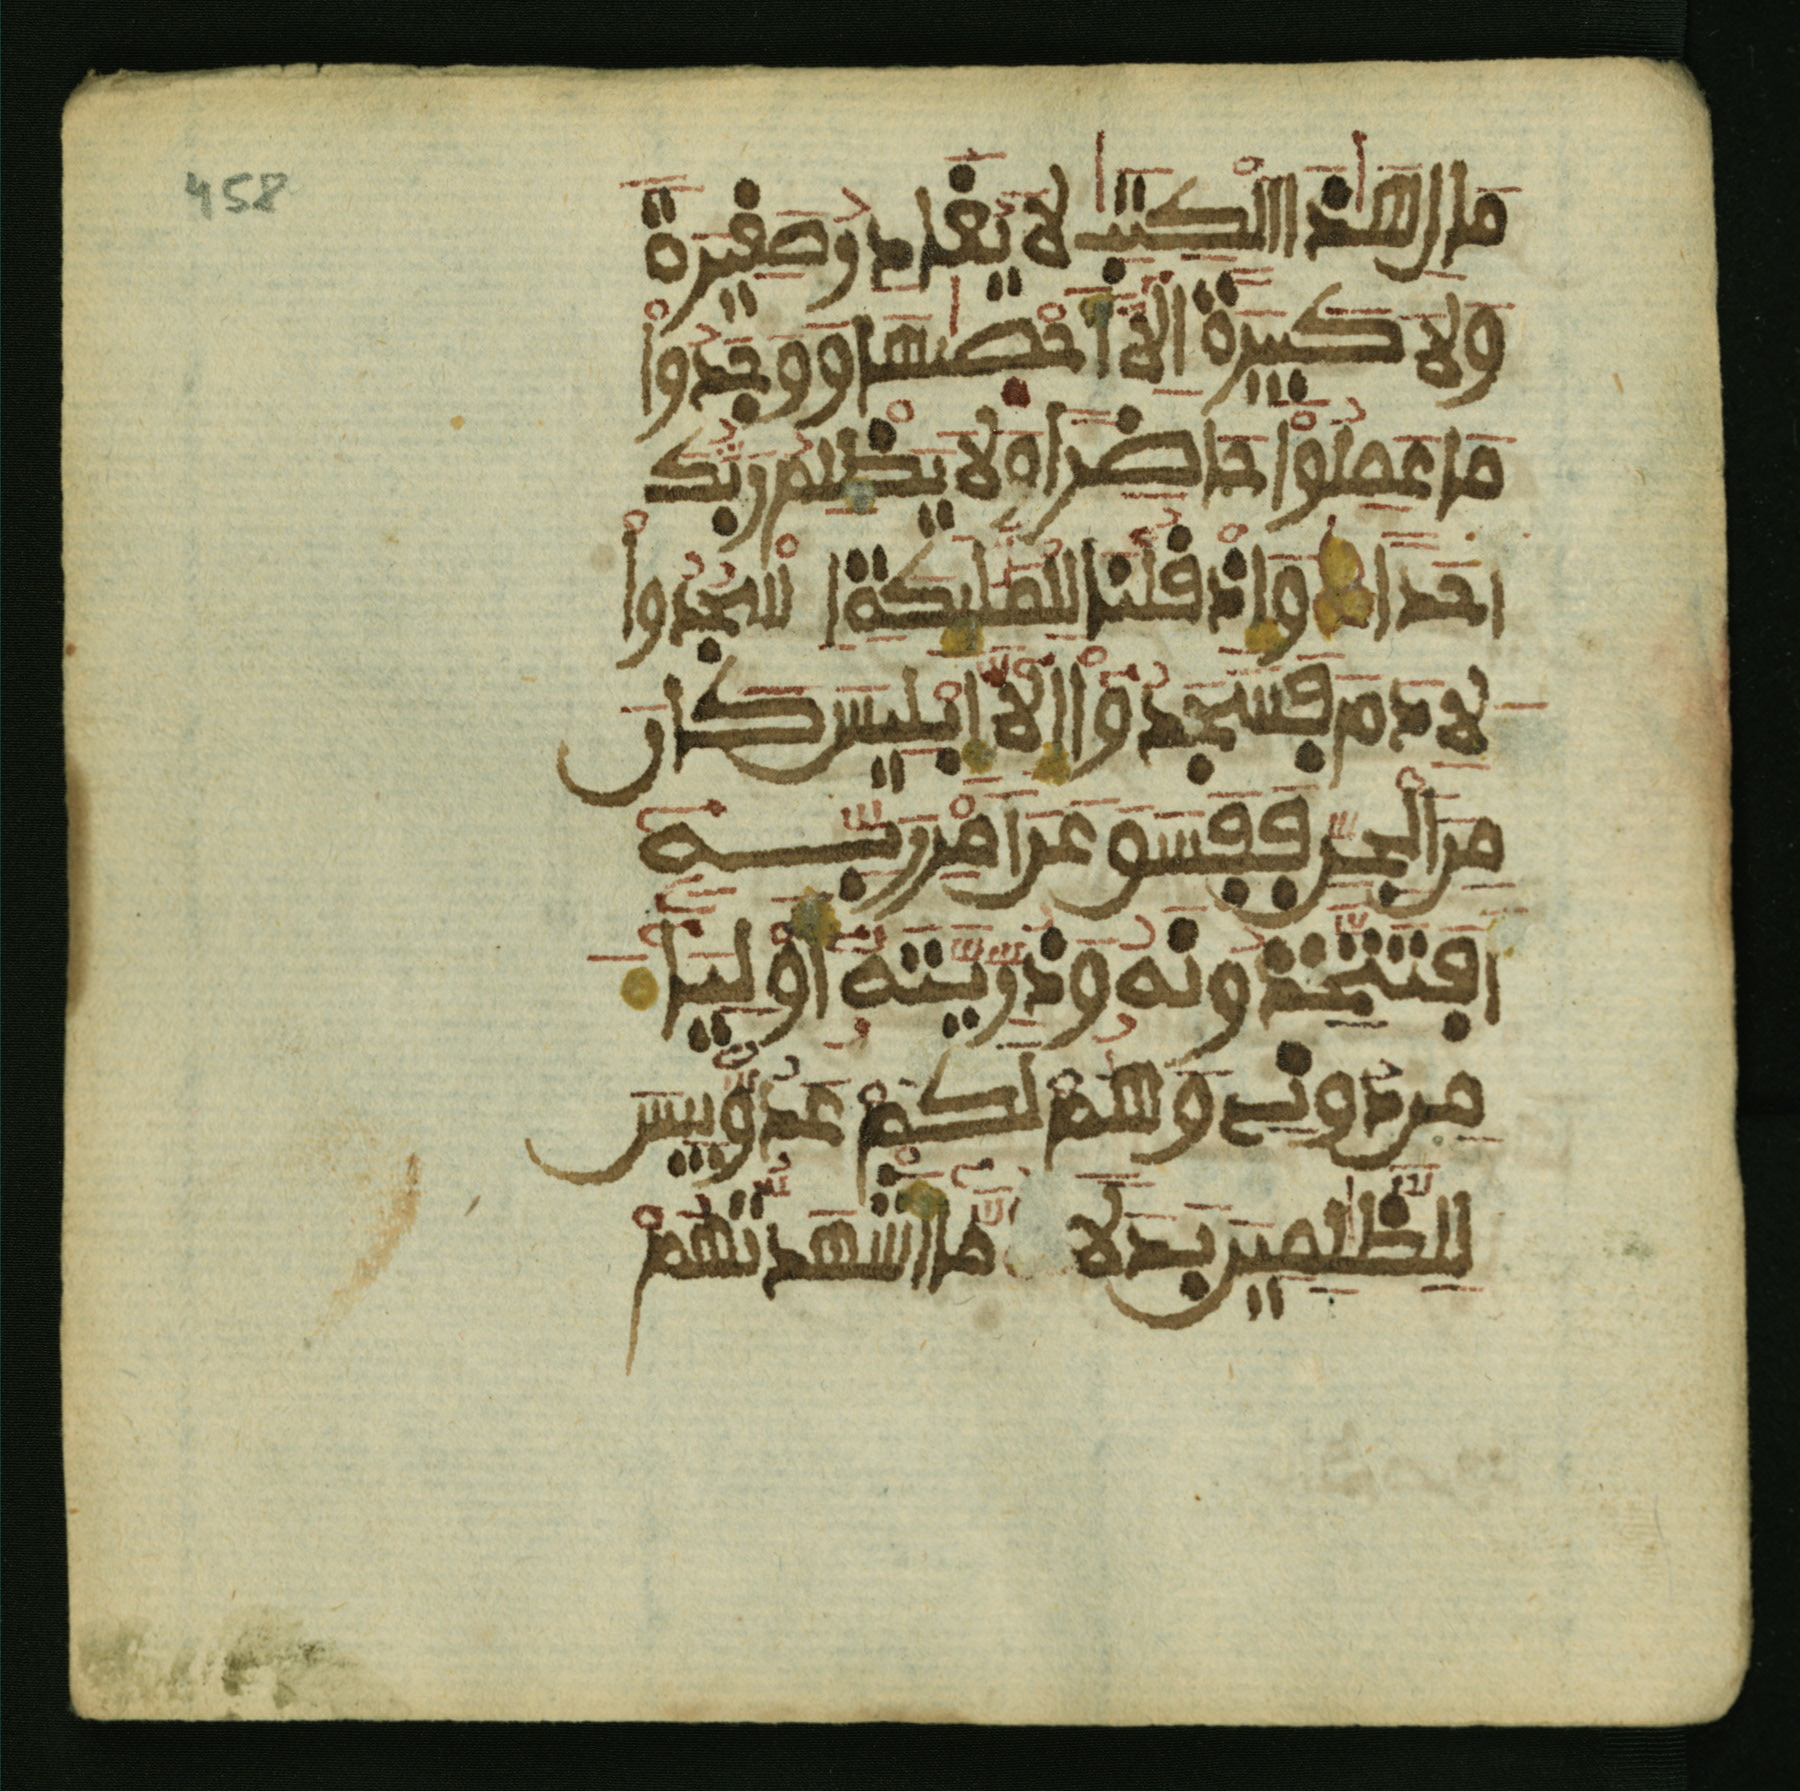 458
مال هذا الكتب لا يغادر صغيرة
ولا كبيرة الا احصيها ووجدوا
ما عملوا حاضرا ولا يظلم ربك
احدا واذ قلنا للمليكة اسجدوا
لادم فسجدوا الا ابليس كان
من الجن ففسق عن امر ربه
افتتخذونه وذريته اوليا
من دوني وهم لكم عدو بيس
للظلمين بدلا ما اشهدتهم